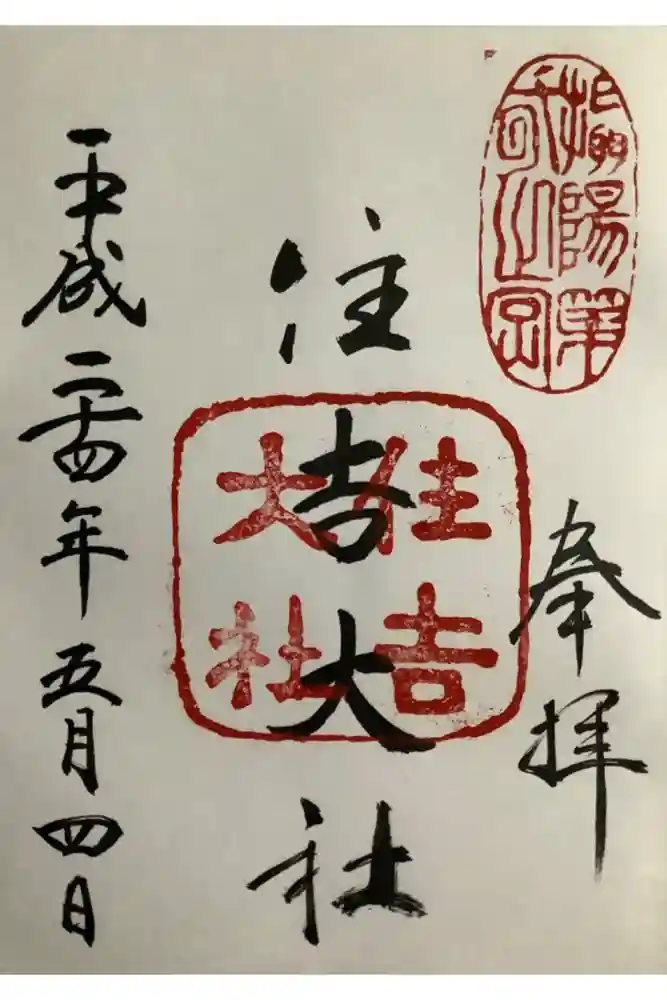 摂陽第
之宮
奉拝
住吉大社
住吉
大社
平成二十四年五月四日